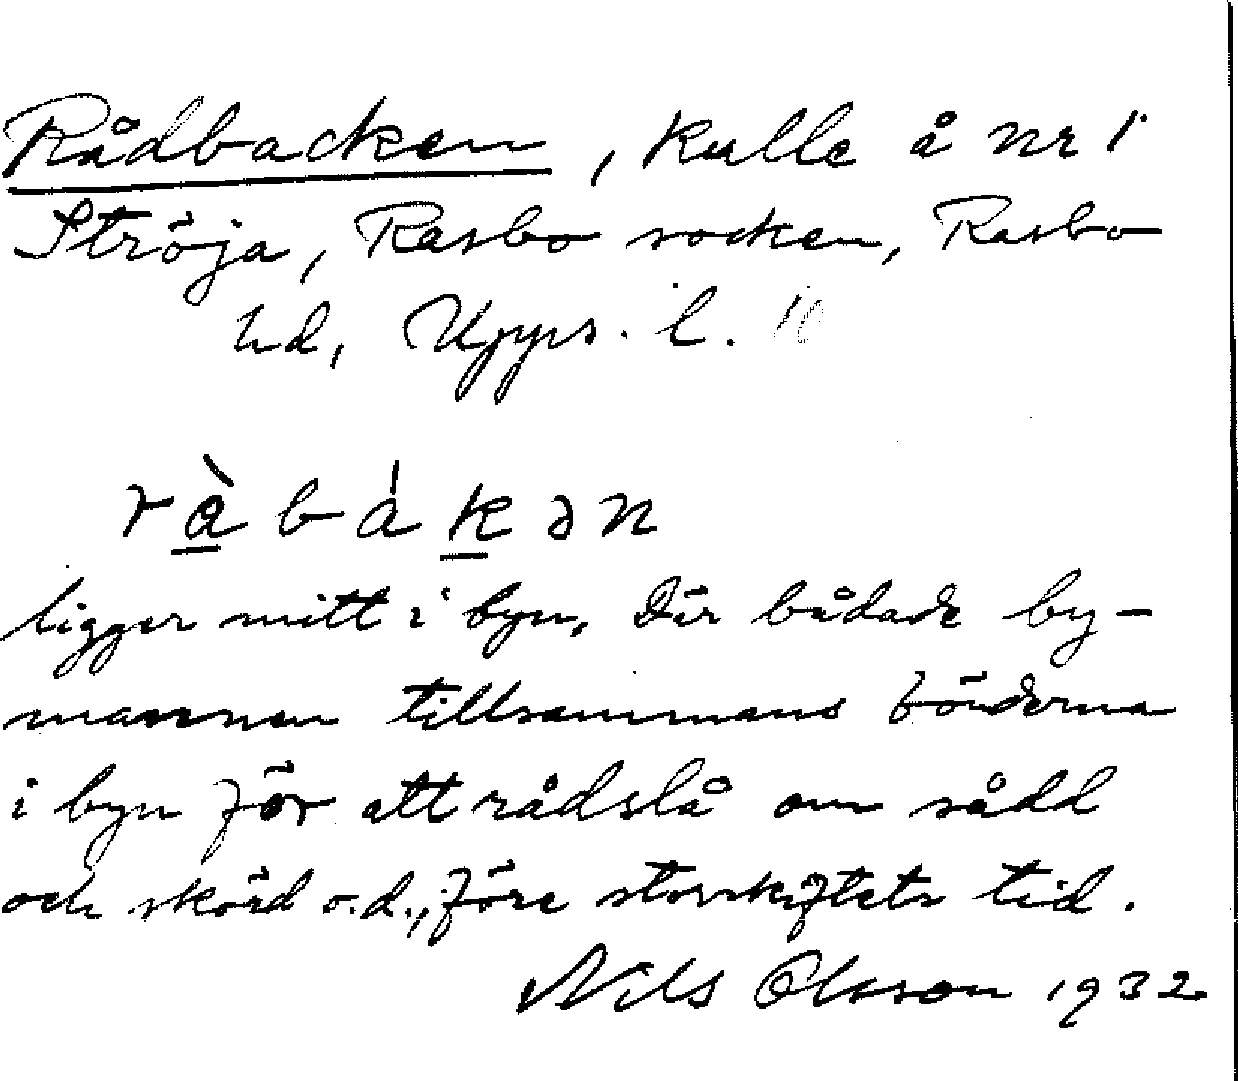 Rådbacken, kulle å nr 1
Ströja, Rasbo socken, Rasbo
hd, Upps. l.
ràbákən
ligger mitt i byn. Där bådade by-
mannen tillsammans bönderna
i byn för att rådslå om sådd
och skörd o.d., före storskiftets tid.
Nils Olsson 1932